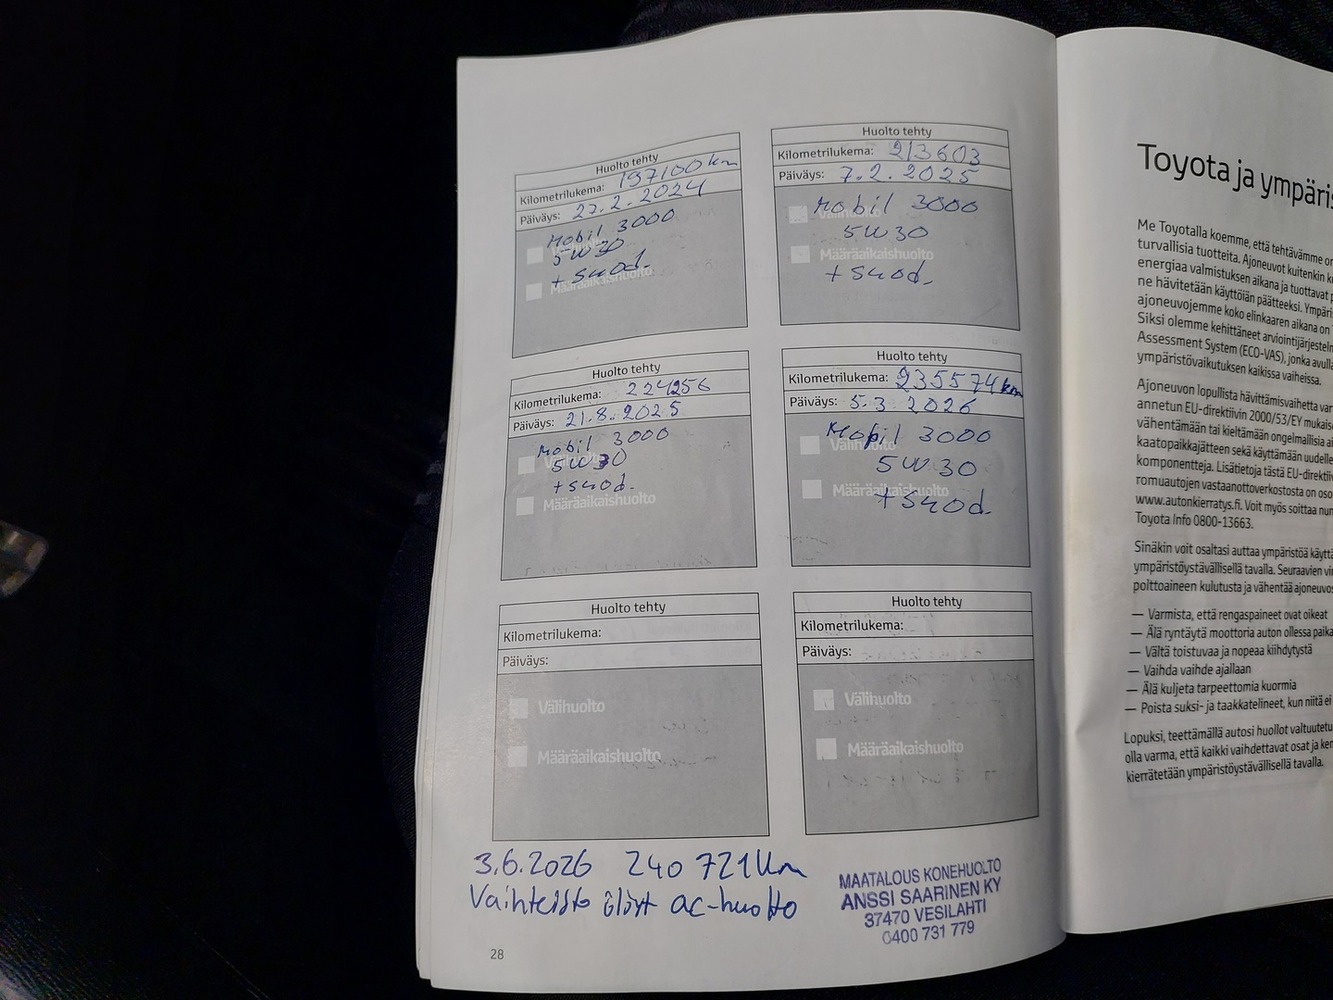 Huolto tehty
Kilometrilukema: 197100 km
Päiväys: 27.2.2024
Mobil 3000
5W30
+ suod.
Määräaikaishuolto
Huolto tehty
Kilometrilukema: 213603
Päiväys: 7.2.2025
Mobil 3000
5W30
Määräaikaishuolto
+ suod.
Huolto tehty
Kilometrilukema: 224256
Päiväys: 21.8.2025
Mobil 3000
5W30
+ suod.
Määräaikaishuolto
Huolto tehty
Kilometrilukema: 235574 km
Päiväys: 5.3.2026
Mobil 3000
Välihuolto
5W30
Määräaikaishuolto
+ suod.
Huolto tehty
Kilometrilukema:
Päiväys:
Välihuolto
Määräaikaishuolto
Huolto tehty
Kilometrilukema:
Päiväys:
Välihuolto
Määräaikaishuolto
3.6.2026 240 721 km
Vaihteisto öljyt ac-huolto
MAATALOUS KONEHUOLTO
ANSSI SAARINEN KY
37470 VESILAHTI
0400 731 779
28
Toyota ja ympäris
Me Toyotalla koemme, että tehtävämme on
turvallisia tuotteita. Ajoneuvot kuitenkin k
energiaa valmistuksen aikana ja tuottavat
ne hävitetään käyttöiän päätteeksi. Ympäri
ajoneuvojemme koko elinkaaren aikana on
Siksi olemme kehittäneet arviointijärjesteln
Assessment System (ECO-VAS), jonka avulla
ympäristövaikutuksen kaikissa vaiheissa.
Ajoneuvon lopullista hävittämisvaihetta var
annetun EU-direktiivin 2000/53/EY mukais
vähentämään tai kieltämään ongelmallisia ai
kaatopaikkajätteen sekä käyttämään uudelle
komponentteja. Lisätietoja tästä EU-direktiiv
romuautojen vastaanottoverkostosta on oso
www.autonkierratys.fi. Voit myös soittaa nun
Toyota Info 0800-13663.
Sinäkin voit osaltasi auttaa ympäristöä käyttä
ympäristöystävällisellä tavalla. Seuraavien vi
polttoaineen kulutusta ja vähentää ajoneuvos
— Varmista, että rengaspaineet ovat oikeat
— Älä ryntäytä moottoria auton ollessa paika
— Vältä toistuvaa ja nopeaa kiihdytystä
— Vaihda vaihde ajallaan
— Älä kuljeta tarpeettomia kuormia
— Poista suksi- ja taakkatelineet, kun niitä ei
Lopuksi, teettämällä autosi huollot valtuutetu
olla varma, että kaikki vaihdettavat osat ja ken
kierrätetään ympäristöystävällisellä tavalla.